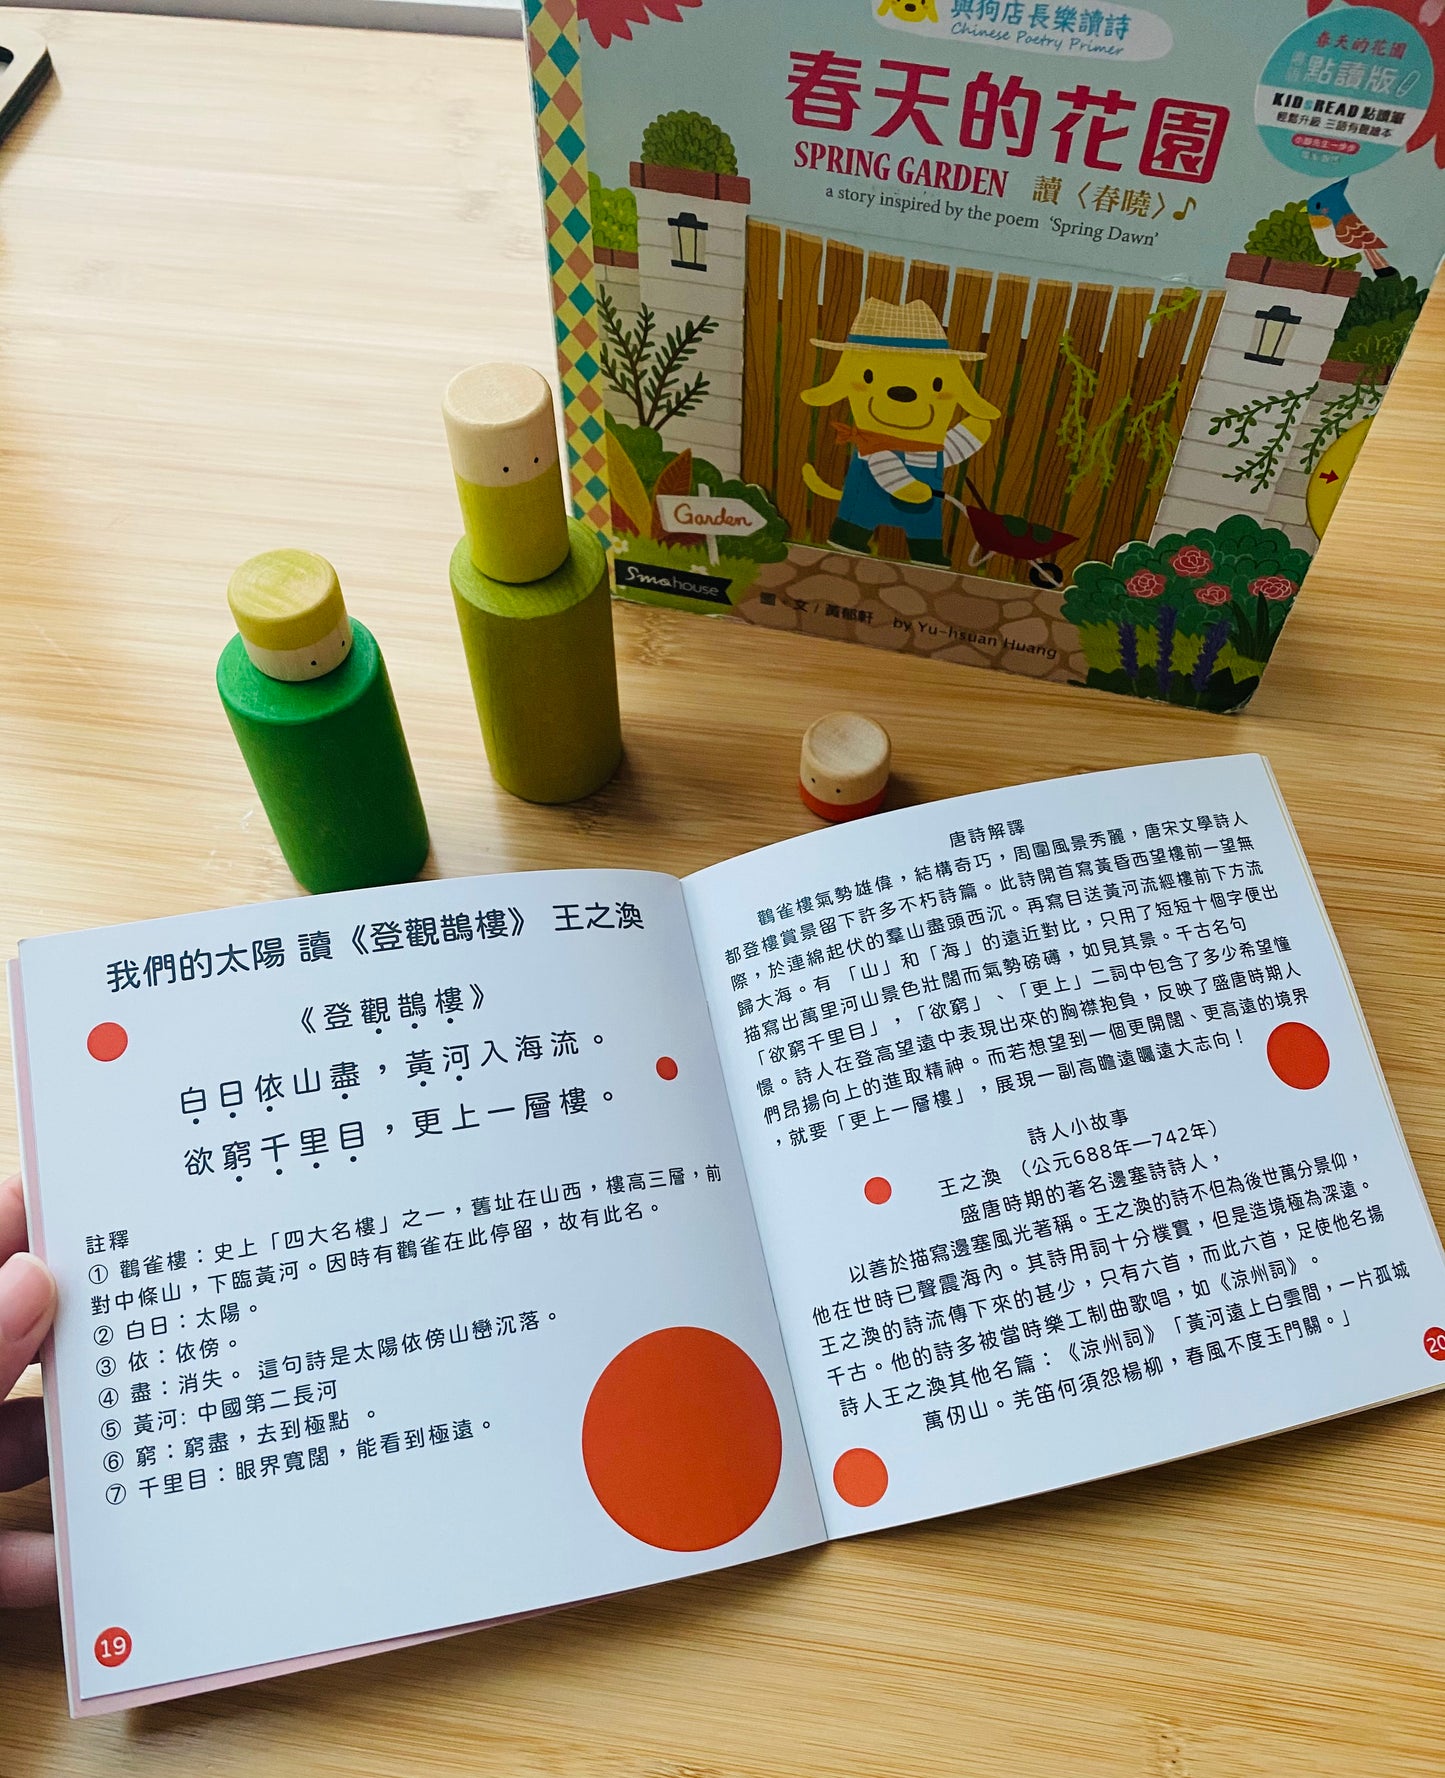 與狗店長樂讀詩
Chinese Poetry Primer
春天的花園
SPRING GARDEN 讀〈春曉〉
a story inspired by the poem ‘Spring Dawn’
春天的花園
點讀版
KIDsREAD 點讀筆
輕鬆升級 三語有聲繪本
Garden
Smahouse
圖・文 / 黃郁軒 by Yu-hsuan Huang
我們的太陽 讀《登觀鵲樓》 王之渙
《登觀鵲樓》
白日依山盡，黃河入海流。
欲窮千里目，更上一層樓。
註釋
① 鸛雀樓：史上「四大名樓」之一，舊址在山西，樓高三層，前
對中條山，下臨黃河。因時有鸛雀在此停留，故有此名。
② 白日：太陽。
③ 依：依傍。
④ 盡：消失。 這句詩是太陽依傍山巒沉落。
⑤ 黃河: 中國第二長河
⑥ 窮：窮盡，去到極點 。
⑦ 千里目：眼界寬闊，能看到極遠。
19
唐詩解譯
鸛雀樓氣勢雄偉，結構奇巧，周圍風景秀麗，唐宋文學詩人
都登樓賞景留下許多不朽詩篇。此詩開首寫黃昏西望樓前一望無
際，於連綿起伏的羣山盡頭西沉。再寫目送黃河流經樓前下方流
歸大海。有 「山」和「海」的遠近對比，只用了短短十個字便出
描寫出萬里河山景色壯闊而氣勢磅礡，如見其景。千古名句
「欲窮千里目」，「欲窮」、「更上」二詞中包含了多少希望憧
憬。詩人在登高望遠中表現出來的胸襟抱負，反映了盛唐時期人
們昂揚向上的進取精神。而若想望到一個更開闊、更高遠的境界
，就要「更上一層樓」，展現一副高瞻遠矚遠大志向！
詩人小故事
王之渙 （公元688年—742年）
盛唐時期的著名邊塞詩詩人，
以善於描寫邊塞風光著稱。王之渙的詩不但為後世萬分景仰，
他在世時已聲震海內。其詩用詞十分樸實，但是造境極為深遠。
王之渙的詩流傳下來的甚少，只有六首，而此六首，足使他名揚
千古。他的詩多被當時樂工制曲歌唱，如《涼州詞》。
詩人王之渙其他名篇：《涼州詞》「黃河遠上白雲間，一片孤城
萬仞山。羌笛何須怨楊柳，春風不度玉門關。」
20